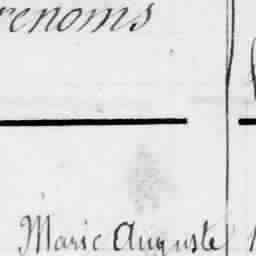 renoms
Marie Auguste